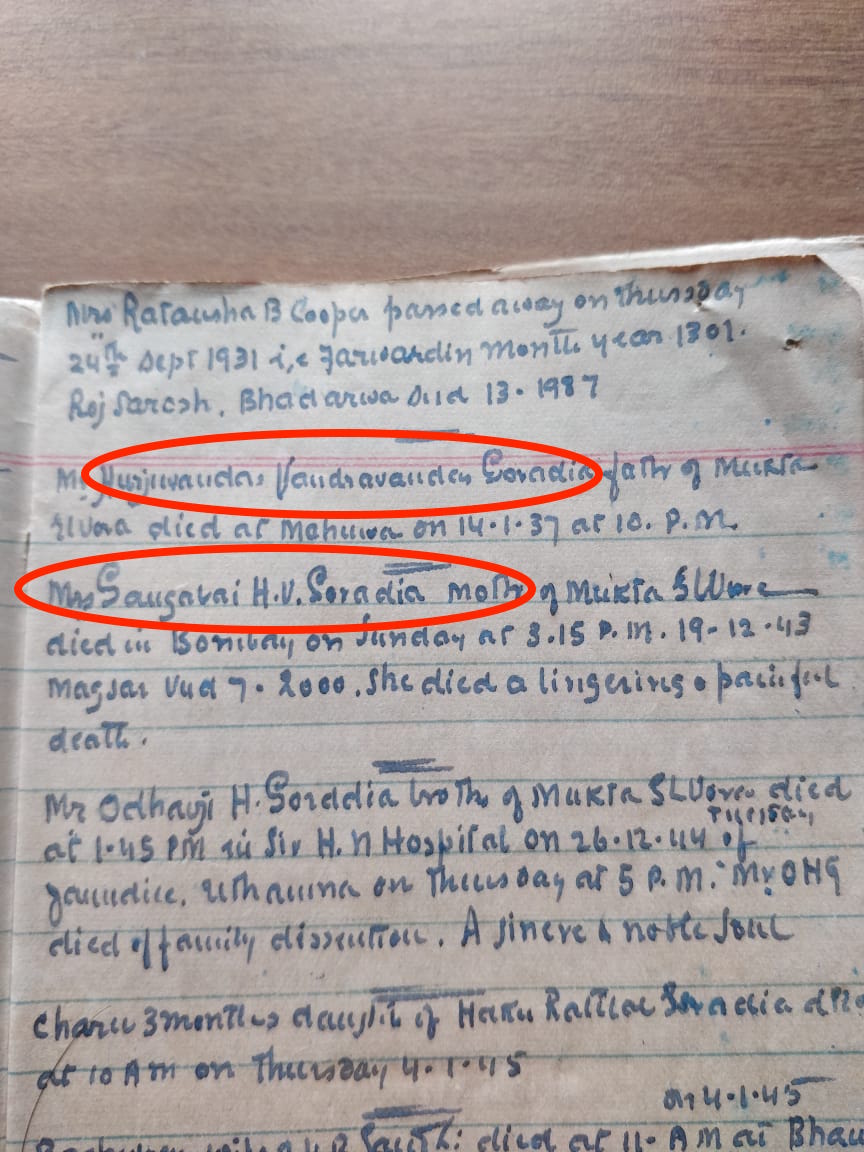 Mrs Ratansha B Cooper passed away on Thursday
24th Sept 1931 i,e Farwardin month year 1301.
Roj Sarosh, Bhadarwa Sud 13. 1987
Mr Hurjivandas Vandravandas Goradia fathr of Mukta
SLVora died at Mahuwa on 14.1.37 at 10. P.M.
Mrs H.V. Goradia mothr of Mukta SLVora
died in Bombay on Sunday at 3.15 P.M. 19-12.43
Magsar Vud 7. 2000. She died a lingering & painful
death.
Mr Odhavji H. Goradia broth of Mukta SLVora died
at 1.45 PM in Sir H. N Hospital on 26.12.44 Tuesday of
Jaundice. Uthamna on Thursday at 5 P.M. Mr OHG
died of family dissention. A sincere & noble soul
Charu 3 months daughtr of Rattilal Goradia
at 10 AM on Thursday 4.1.45
on 4.1.45
died at 11. AM at